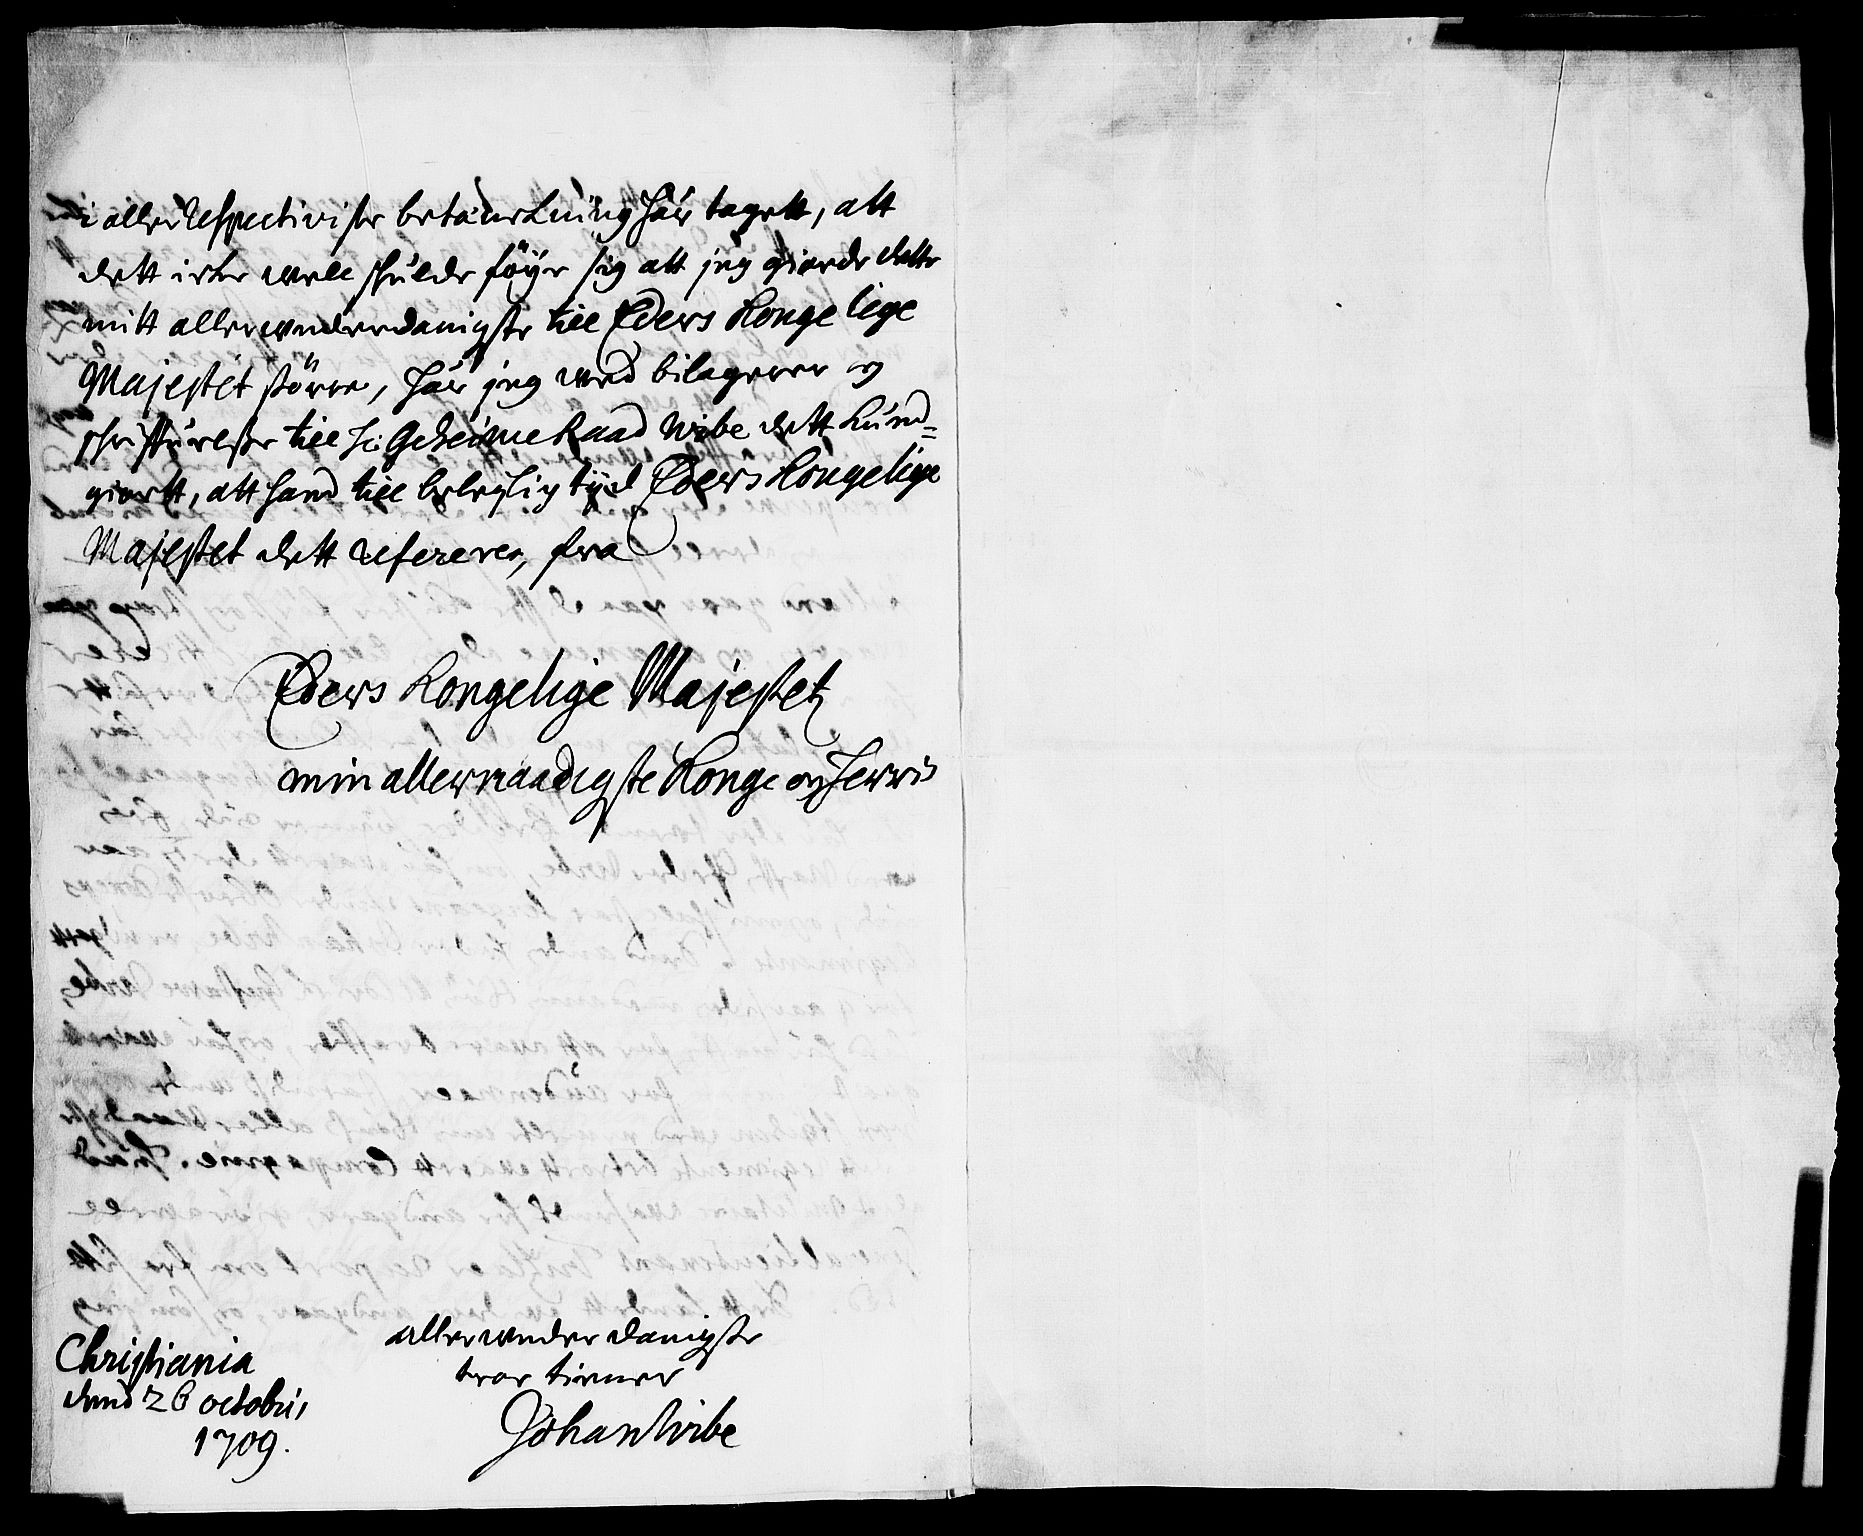 i aller respectiviste betænckning har tagett, att
dett icke well skulde föye sig att jeg giorde dette
mitt allerunderdanigste till Eders Kongelige
Majestet större, har jeg med bilagerne og
skrifftvelse till H: Geheime Raad Wibe dett kund=
giortt, att hand till beleylig tyd Eders Kongelige
Majestet dett referere, fra
Eders Kongelige Majestetz
min allernaadigste Konge og Herris
allerunderdanigste
troe tiener
Johan Wibe
Christiania
dend 26 octobris
1709.